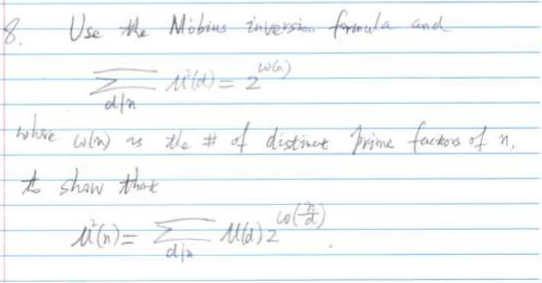 8. Use the Möbius inversion formula and
∑_{d|n} μ²(d) = 2^{ω(n)}
where ω(n) is the # of distinct prime factors of n,
to show that
μ²(n) = ∑_{d|n} μ(d) 2^{ω(n/d)}.